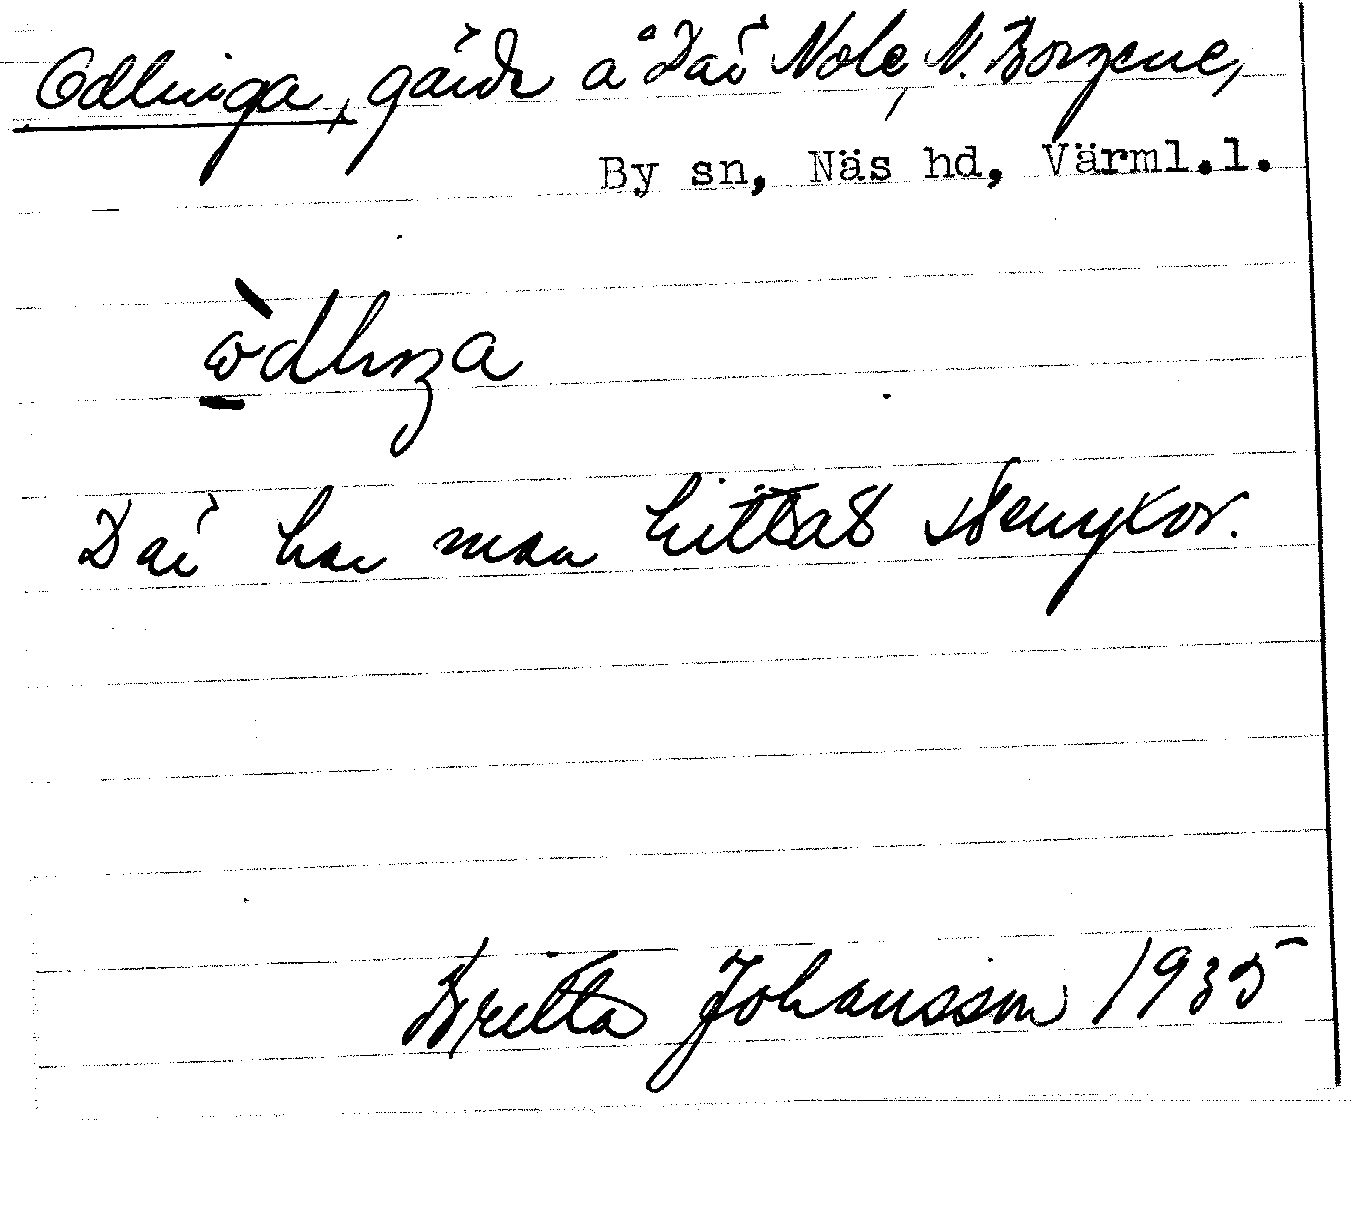 Odlinga, gärde å Där Nole, N. Borgene,
By sn, Näs hd, Värml.l.
ò̱dlıŋa
Där har man hittat stenyxor.
Britta Johansson 1935